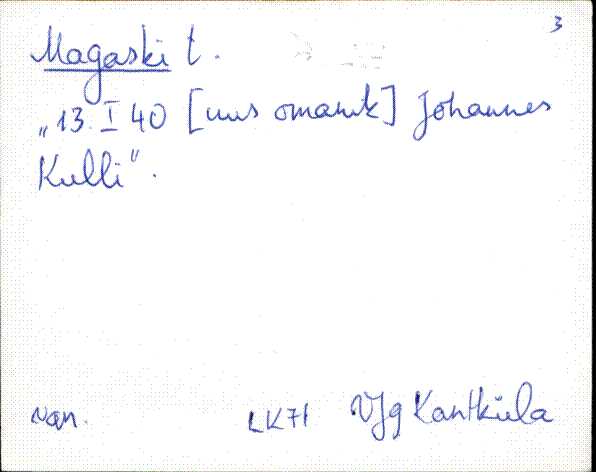 3
Magaski t.
„13. I 40 [uus omanik] Johannes
Kulli”.
van. LK71 VJg Kantküla